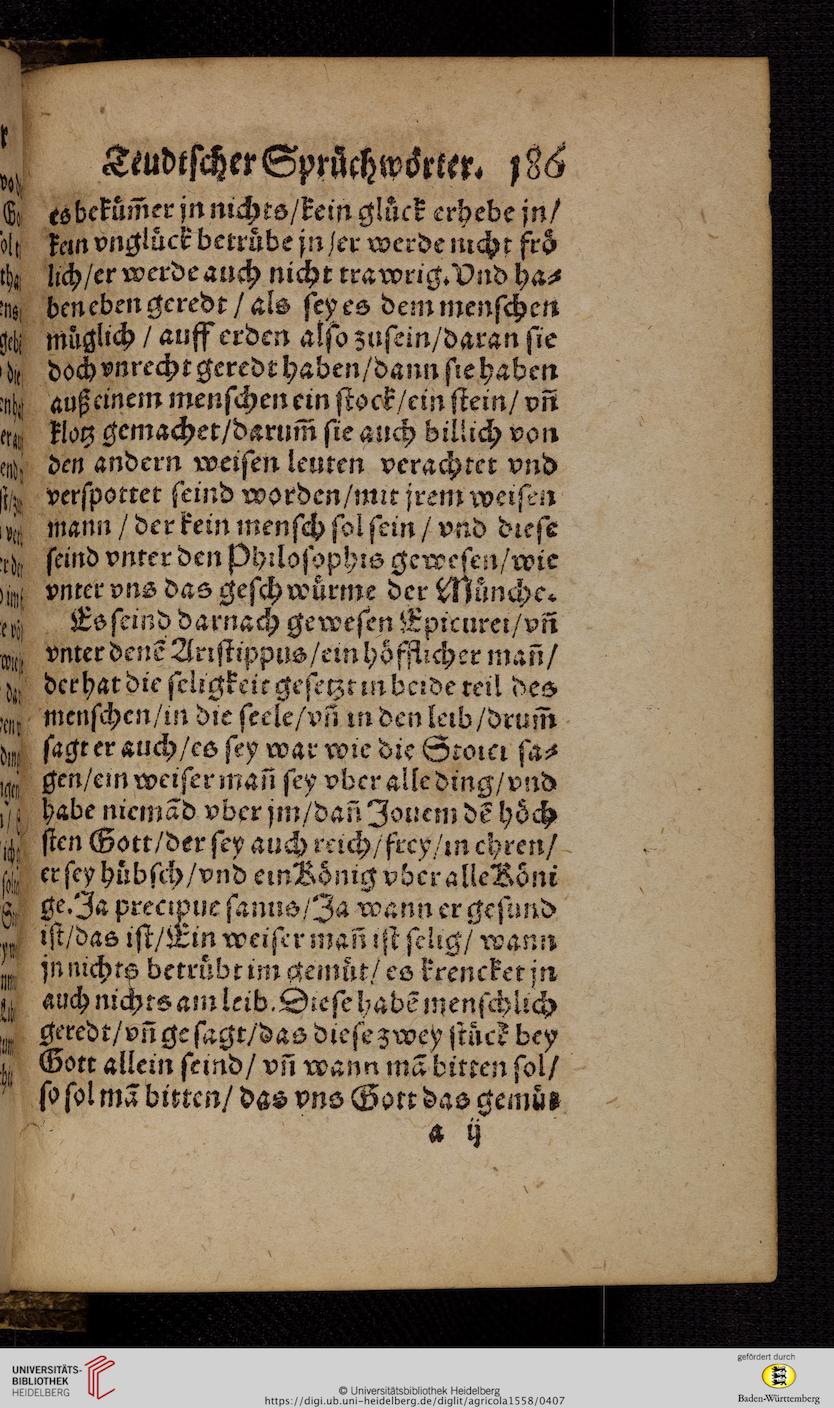 Teudtscher Sprüchwörter. 186
es bekům̃er jn nichts/kein glůck erhebe jn/
kein vnglůck betrůbe jn/er werde nicht frö
lich/er werde auch nicht trawrig. Vnd ha⸗
ben eben geredt / als sey es dem menschen
můglich / auff erden also zusein/daran sie
doch vnrecht geredt haben/dann sie haben
auß einem menschen ein stock/ein stein/ vñ
klotz gemachet/darum̃ sie auch billich von
den andern weisen leuten verachtet vnd
verspottet seind worden/mit jrem weisen
mann / der kein mensch sol sein / vnd diese
seind vnter den Philosophis gewesen/wie
vnter vns das geschwůrme der Můnche.
Es seind darnach gewesen Epicurei/vñ
vnter denẽ Aristippus/ein höfflicher mañ/
der hat die seligkeit gesetzt in beide teil des
menschen/in die seele/vñ in den leib/drum̃
sagt er auch/es sey war wie die Stoici sa⸗
gen/ein weiser mañ sey vber alle ding/vnd
habe niemãd vber jm/dañ Jouem dẽ hőch
sten Gott/der sey auch reich/frey/in ehren/
er sey hůbsch/vnd ein Kőnig vber alle Kőni
ge. Ja precipue sanus/Ja wann er gesund
ist/das ist/Ein weiser mañ ist selig/ wann
jn nichts betrůbt im gemůt/ es krencket jn
auch nichts am leib. Diese habẽ menschlich
geredt/vñ gesagt/das diese zwey stůck bey
Gott allein seind/ vñ wann mã bitten sol/
so sol mã bitten/ das vns Gott das gemůt
a ij
UNIVERSITÄTS-
BIBLIOTHEK
HEIDELBERG
© Universitätsbibliothek Heidelberg
https://digi.ub.uni-heidelberg.de/diglit/agricola1558/0407
gefördert durch
Baden-Württemberg